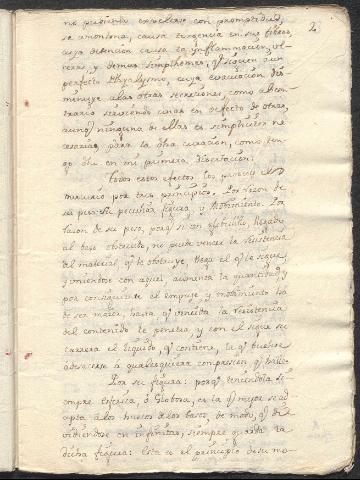 2
no pudiendo expelerse con promptitud,
se amontona, causa turgencia en sus fibras,
cuya detencion causa la ynflammacion, ul-
ceras, y demas simpthomas, q.e siguen a un
perfecto Phtyalysmo, cuya evacuacion dis-
minuye a las otras secreciones, como al con-
trario sirviendo unas en defecto de otras,
aunq.e ninguna de ellas es simpliciter ne-
cesaria para la dha curacion, como ten-
go dho en mi primera disertacion.
Todos estos efectos los produce el
mercurio por tres principios. Por razon de
su peso, su peculiar figura, y movimiento. Por
razon de su peso, porq.e si un globulillo, llegado
al baso obstruido, no puede vencer la resistencia
del material q.e le obstruye, llega el q.e le sigue,
y uniendose con aquel, aumenta la quantidad, y
por consiguiente el empuje y movimiento ha
de ser maior, hasta q.e vencida la resistencia
del contenido le penetra, y con el sigue su
carrera el liquido, q.e contiene, la q.e buelve
a desacerse a qualesquiera compression q.e halle.
Por su figura: porq.e teniendola si-
empre Esferica, ò Globosa, es la q.e mejor se ad-
apta a los huecos a los basos, de modo, q.e di-
vidiendose en infinitas, siempre guarda la
dicha figura: Esta es el principio de su mo-